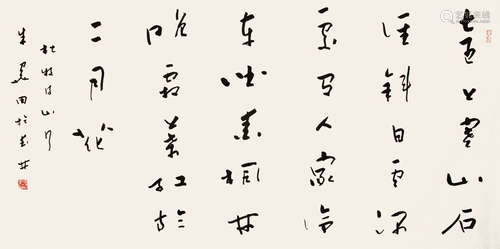 遠上寒山石
徑斜日雲深
處有人家停
車坐愛楓林
晚霜葉紅於
二月花
杜牧詩山行
朱田於林